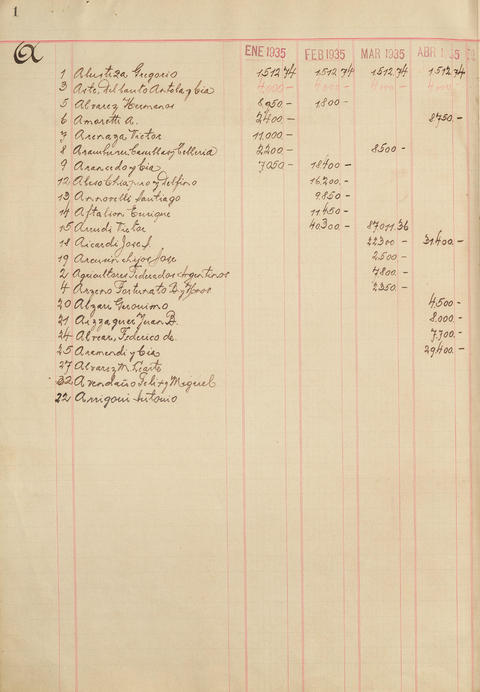 1
A
ENE 1935 FEB 1935 MAR 1935 ABR 1935
1 Alustiza Gregorio 1512 74 1512 74 1512 74 1512 74
3 Arte. del Santo Antola y Cia 4000.- 4000.- 4000.- 4000.-
5 Alvarez Hermanos 8950.- 1800.-
6 Amoretti A. 2400.- 8750.-
7 Arenaza Victor 11,000.-
8 Aramburu Casullas, Telleria 2200.- 8500.-
9 Arancedo y Cia 7050.- 18400.-
12 Chiapino y Delfino 16,200.-
13 Annovelli Santiago 9,850.-
14 Aftalion Enrique 11,450.-
15 Victor 40300.- 87011.36
18 Aicardi Jose S. 22300.- 31400.-
19 hijos Jose 2500.-
2 Agricultores Federados Argentinos 4800.-
4 Anzeno Fortunato B. y Hnos 2350.-
20 Alzari Geronimo 4,500.-
21 Aizzaguer Juan B. 8.000.-
24 Alvear, Federico de 7,700.-
25 Aramendi y Cia 29400.-
27 Alvarez M. Ligito
32 Avendaño Felix y Miguel
22 Arrigoni Antonio